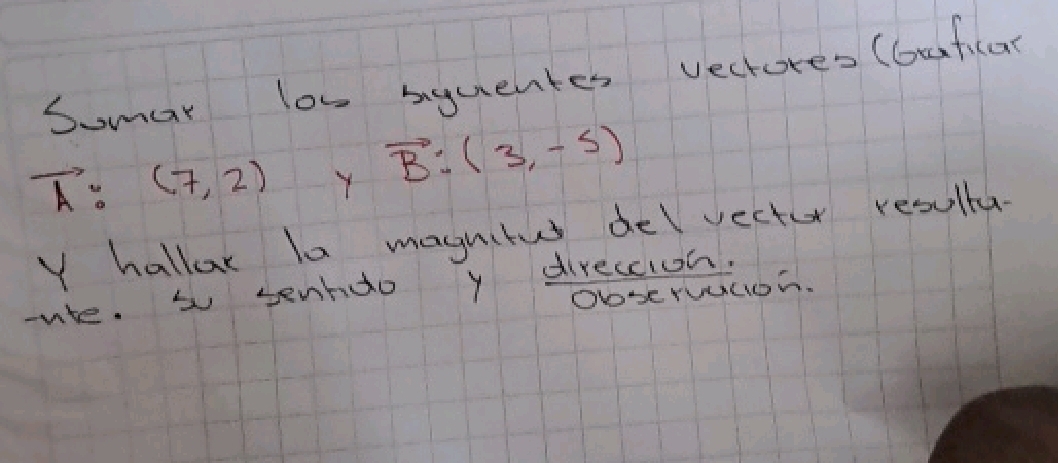 Sumar los siguientes vectores (Graficar
A: (7,2) y B: (3,-5)
Y hallar la magnitud del vector resulta-
-nte. su sentido y dirección.
Observación.